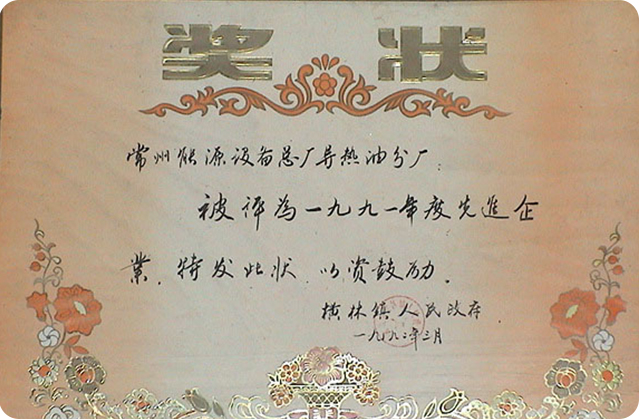 奖状
常州能源设备总厂导热油分厂：
被评为一九九一年度先進企
業．特发此状．以资鼓励．
横林镇人民政府
一九九二年三月